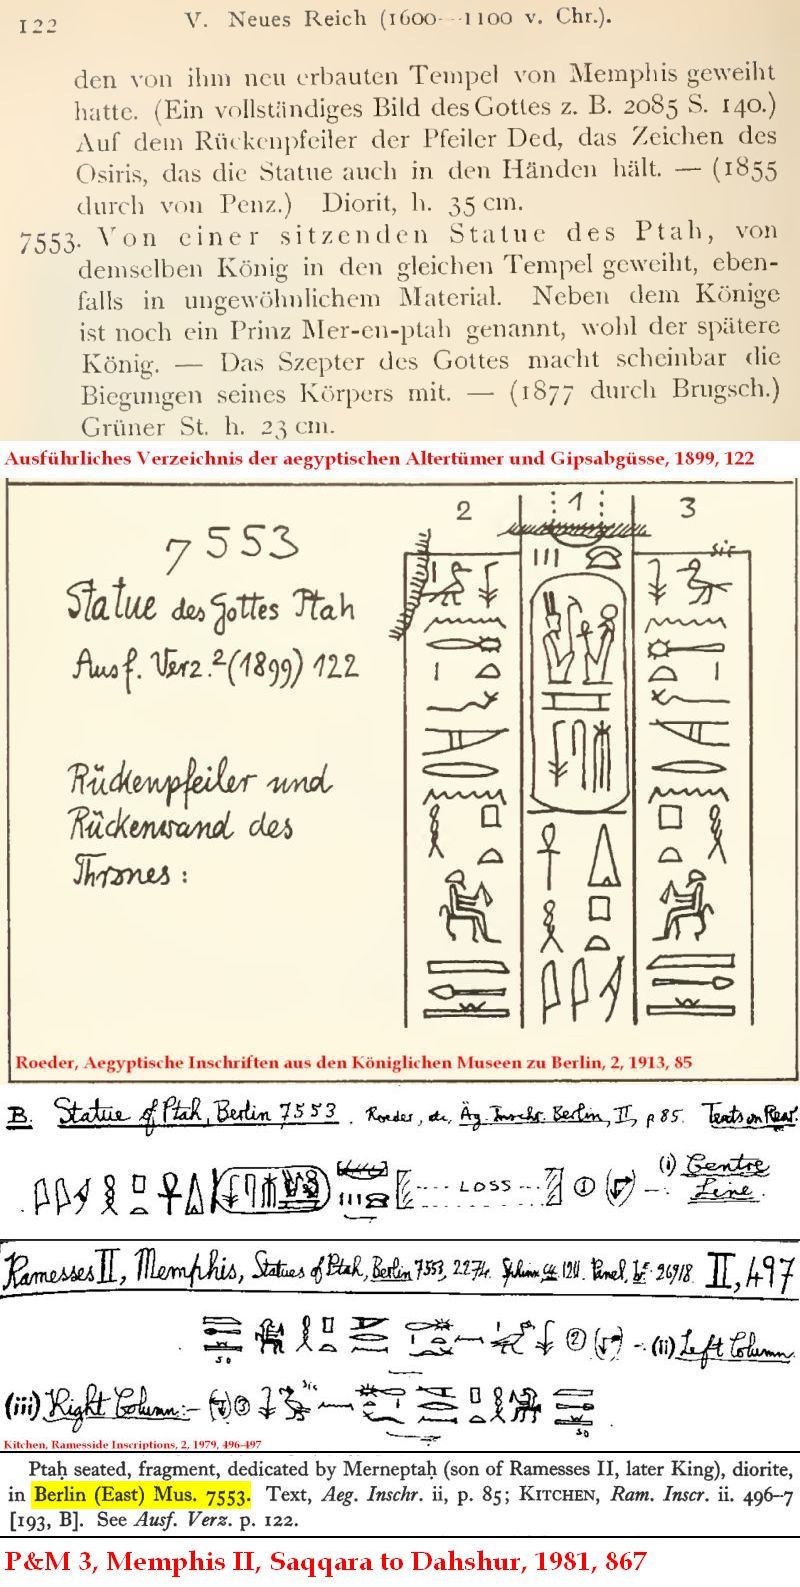 122
V. Neues Reich (1600—1100 v. Chr.).
den von ihm neu erbauten Tempel von Memphis geweiht
hatte. (Ein vollständiges Bild des Gottes z. B. 2085 S. 140.)
Auf dem Rückenpfeiler der Pfeiler Ded, das Zeichen des
Osiris, das die Statue auch in den Händen hält. — (1855
durch von Penz.) Diorit, h. 35 cm.
7553. Von einer sitzenden Statue des Ptah, von
demselben König in den gleichen Tempel geweiht, eben-
falls in ungewöhnlichem Material. Neben dem Könige
ist noch ein Prinz Mer-en-ptah genannt, wohl der spätere
König. — Das Szepter des Gottes macht scheinbar die
Biegungen seines Körpers mit. — (1877 durch Brugsch.)
Grüner St. h. 23 cm.
Ausführliches Verzeichnis der aegyptischen Altertümer und Gipsabgüsse, 1899, 122
2 1 3
sic
7553
Statue des Gottes Ptah
Ausf. Verz.² (1899) 122
Rückenpfeiler und
Rückenwand des
Thrones:
Roeder, Aegyptische Inschriften aus den Königlichen Museen zu Berlin, 2, 1913, 85
B. Statue of Ptah, Berlin 7553. Roeder, Äg. Inschr. Berlin, II, p 85. Texts on Rear:
LOSS 1 (i) Centre
Line.
Ramesses II, Memphis, Statues of Ptah, Berlin 7553, 2274. II, 497
2 (ii) Left Column.
so
(iii) Right Column:- 3 sic
so
Kitchen, Ramesside Inscriptions, 2, 1979, 496-497
Ptaḥ seated, fragment, dedicated by Merneptaḥ (son of Ramesses II, later King), diorite,
in Berlin (East) Mus. 7553. Text, Aeg. Inschr. ii, p. 85; KITCHEN, Ram. Inscr. ii. 496–7
[193, B]. See Ausf. Verz. p. 122.
P&M 3, Memphis II, Saqqara to Dahshur, 1981, 867